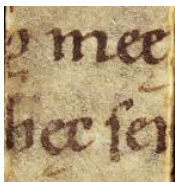 mee
hec ser